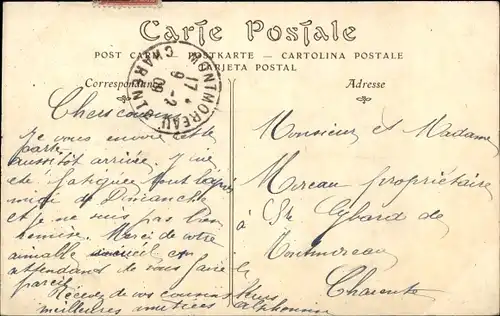 Carte Postale
POST CARD — POSTKARTE — CARTOLINA POSTALE
TARJETA POSTAL
Correspondance
Adresse
MONTMOREAU
17 *
9 -2
09
CHARENTE
Chers cousins
Je vous envoie cette
carte
aussitôt arrivée. J'ai
été fatiguée tout l'après
midi de Dimanche
et je ne suis pas bien
remise. Merci de votre
aimable accueil en
attendant de vous faire le
pareil
Recevez de vos cousins leurs
meilleures amitiés Alphonsine
Monsieur et Madame
Moreau propriétaire
à St Cybard de
Montmoreau
Charente